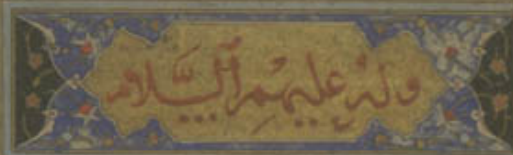 وله علیهم السلام